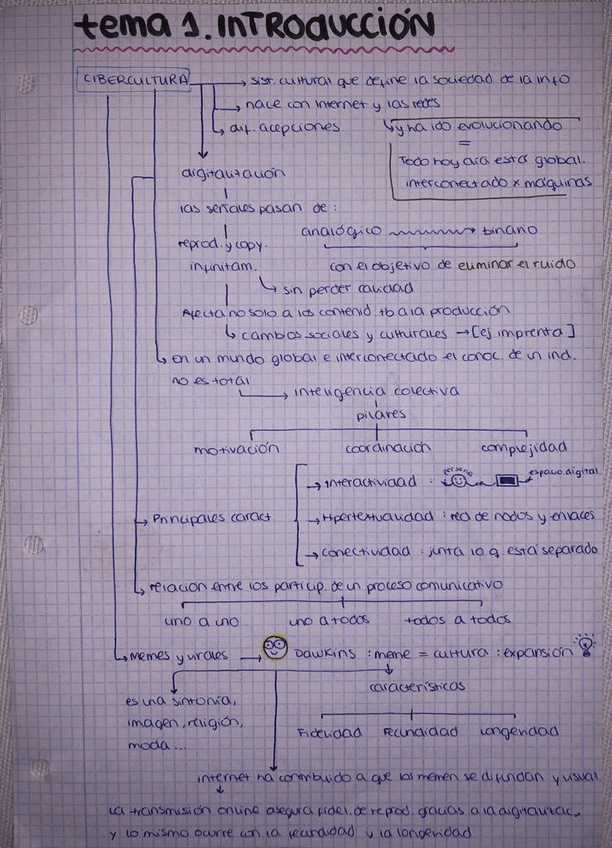 tema 1. INTRODUCCIÓN
CIBERCULTURA → sist. cultural que define la sociedad de la info
→ nace con internet y las redes
→ dif. acepciones
↳ y ha ido evolucionando
=
Todo hoy día está global.
interconectado x máquinas
digitalización
las señales pasan de :
analógico → binario
con el objetivo de eliminar el ruido
reprod. y copy.
infinitam.
↳ sin perder calidad
Afecta no solo a los contenid. tb a la producción
↳ cambios sociales y culturales → [ej imprenta]
en un mundo global e interconectado el conoc. de un ind.
no es total
→ inteligencia colectiva
pilares
motivación coordinación complejidad
Principales caract
→ Interactividad : persona espacio digital
→ Hipertextualidad : red de nodos y enlaces
→ conectividad : junta lo q. está separado
relación entre los particip. de un proceso comunicativo
uno a uno uno a todos todos a todos
Memes y virales → Dawkins : meme = cultura : expansión
características
Fidelidad Fecundidad Longevidad
es una sintonía,
imagen, religión,
moda...
internet ha contribuido a que los memen se difundan y visual
La transmisión online asegura fidel. de reprod. gracias a la digitalizac.
y lo mismo ocurre con la fecundidad y la longevidad